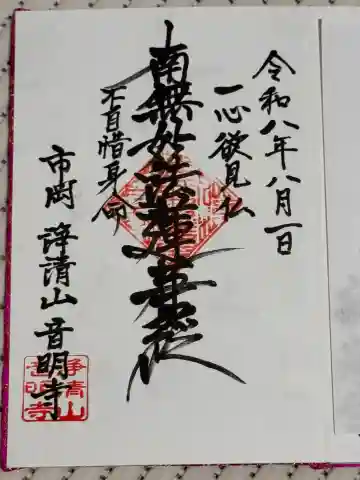 令和八年八月一日
一心欲見仏
南無妙法蓮華経
不自惜身命
市岡 浄清山 音明寺
浄清山
音明寺